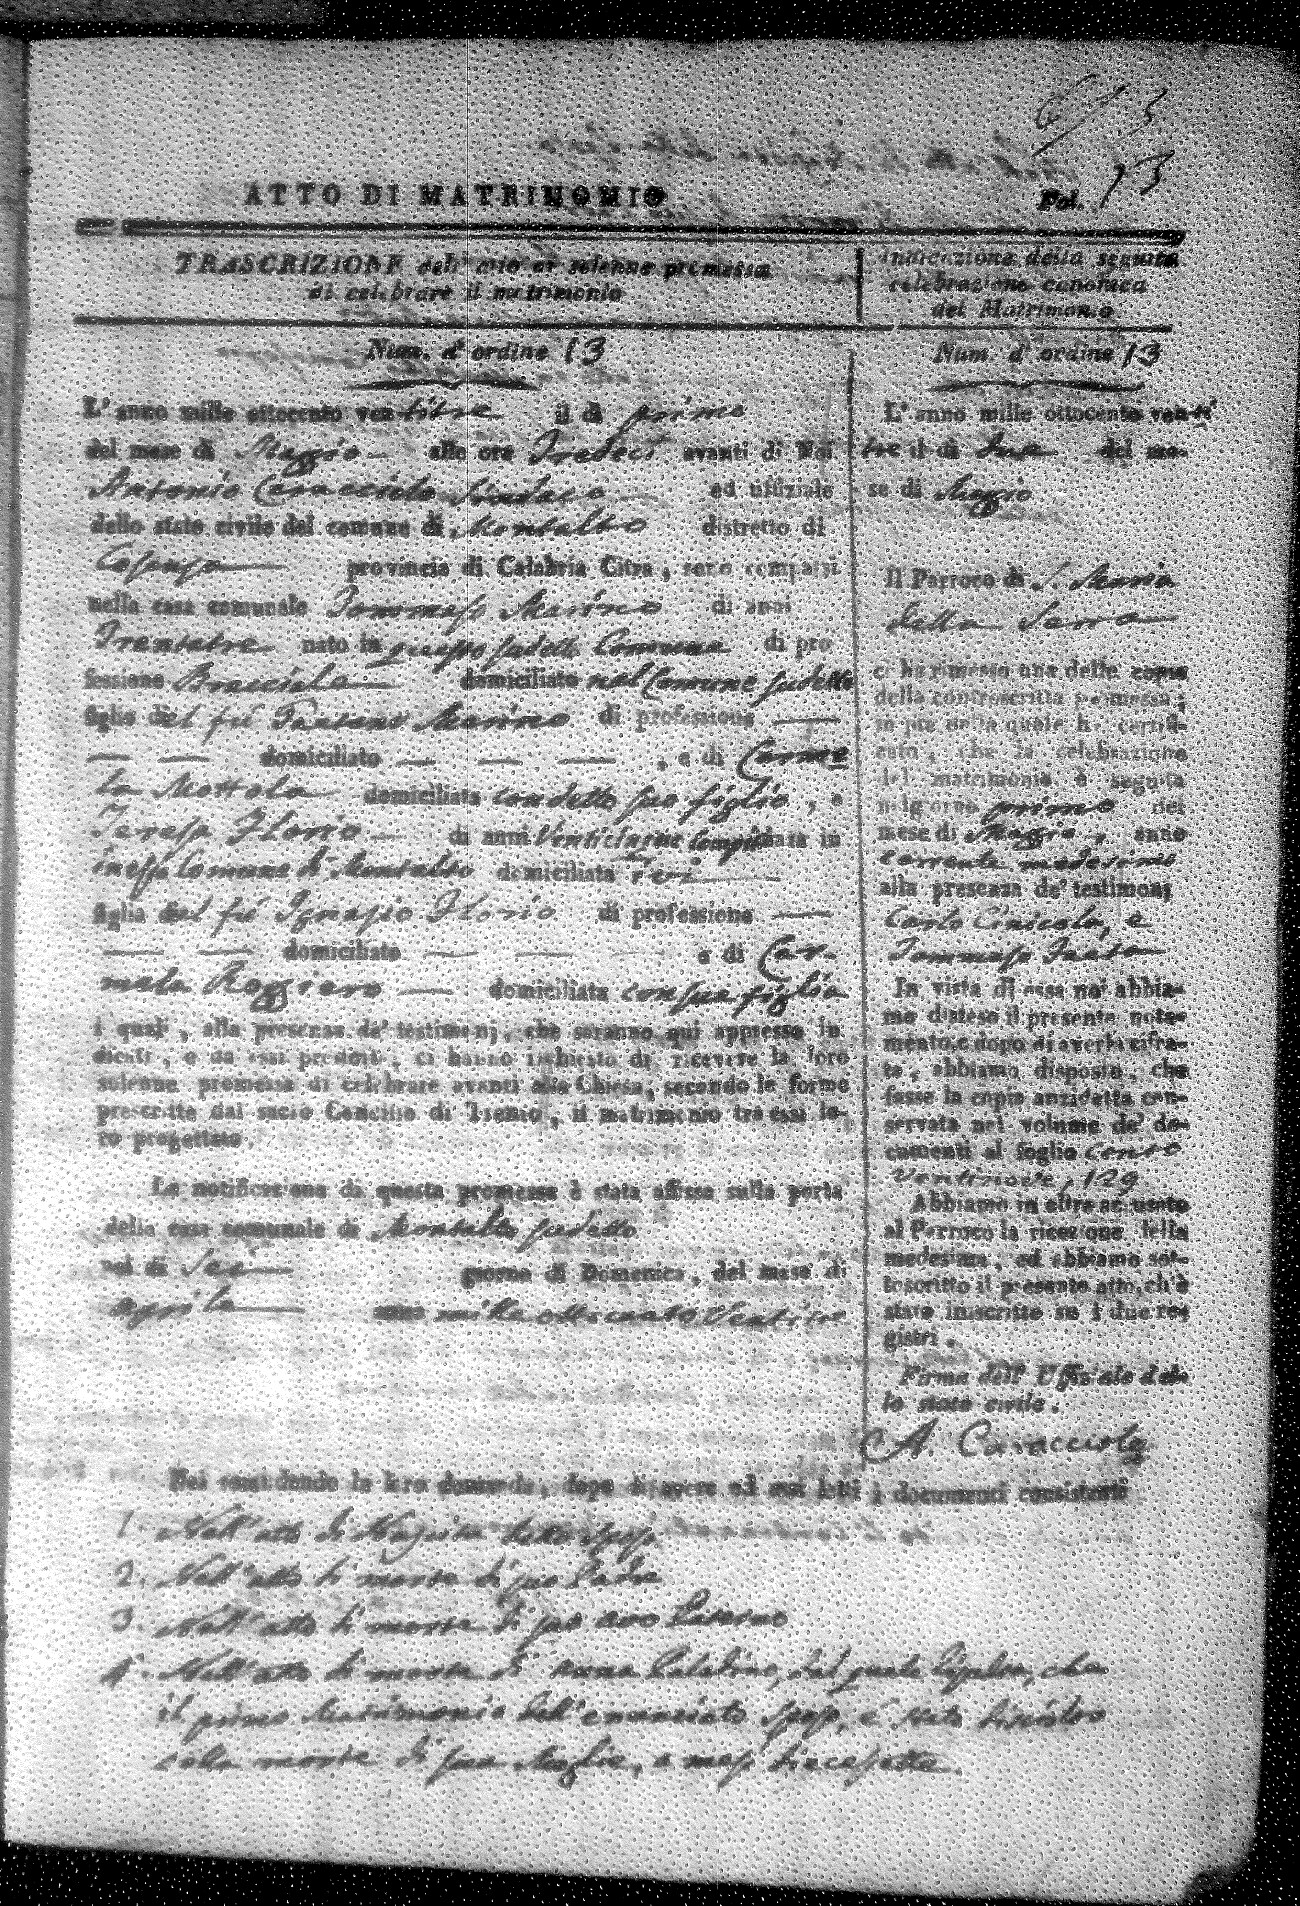 ATTO DI MATRIMONIO
Fol. 13
TRASCRIZIONE dell' atto di solenne promessa
di celebrare il matrimonio
Num. d' ordine 13
L' anno mille ottocento ventitre il dì primo
del mese di Maggio alle ore Tredeci avanti di Noi
Antonio Caracciolo Sindaco ed uffiziale
dello stato civile del comune di Montalto distretto di
Cosenza provincia di Calabria Citra, sono comparsi
nella casa comunale Tommaso Marino di anni
Trentatre nato in questo sudetto Comune di pro
fessione Bracciale domiciliato nel Comune sudetto
figlio del fù Marino di professione
domiciliato , e di Carme
la Mottola domiciliata con detto suo figlio , e
Teresa Florio di anni venticinque compiti nata in
inesso Comune di Montalto domiciliata ivi
figlia del fù Ignazio Florio di professione
domiciliato e di Car-
mela Roggiero domiciliata con sua figlia
i quali, alla presenza de' testimonj, che saranno qui appresso in
dicati, e da essi prodotti, ci hanno richiesto di ricevere la loro
solenne promessa di celebrare avanti alla Chiesa, secondo le forme
prescritte dal sacro Concilio di Trento, il matrimonio tra essi lo-
ro progettato.
La notificazione di questa promessa è stata affissa sulla porta
della casa comunale di Montalto sudetto
nel dì Sei giorno di Domenica, del mese di
aprile anno mille ottocento ventitre
Indicazione della seguita
celebrazione canonica
del Matrimonio
Num. d' ordine 13
L' anno mille ottocento venti
tre il dì due del me-
se di Maggio
Il Parroco di S. Maria
della Serra
ci ha rimesso una delle copie
della controscritta promessa,
in piè della quale ha certifi-
cato, che la celebrazione
del matrimonio è seguita
nel giorno primo del
mese di Maggio, anno
corrente medesimo
alla presenza de' testimonj
Carlo Cinicola, e
Tommaso
In vista di essa noi abbia-
mo disteso il presente nota-
mento, e dopo di averla cifra-
ta, abbiamo disposto, che
fosse la copia anzidetta con-
servata nel volume de' do-
cumenti al foglio cento
ventinove, 129
Abbiamo in oltre accusato
al Parroco la ricezione della
medesima, ed abbiamo sot-
toscritto il presente atto, ch'è
stato inscritto su i due re-
gistri.
Firma dell' Uffiziale del-
lo stato civile.
A. Caracciolo
Noi secondando la loro domanda, dopo di avere ad essi letti i documenti consistenti
1. Nell' atto di Nascita dello sposo
2. Nell' atto di morte di suo Padre
3. Nell' atto di morte di suo avo Paterno
4. Nell' atto di morte di Anna Paladino, dal quale risulta, che
il primo Matrimonio dell' enunciato sposo, è stato disciolto
colla morte di sua Moglie,